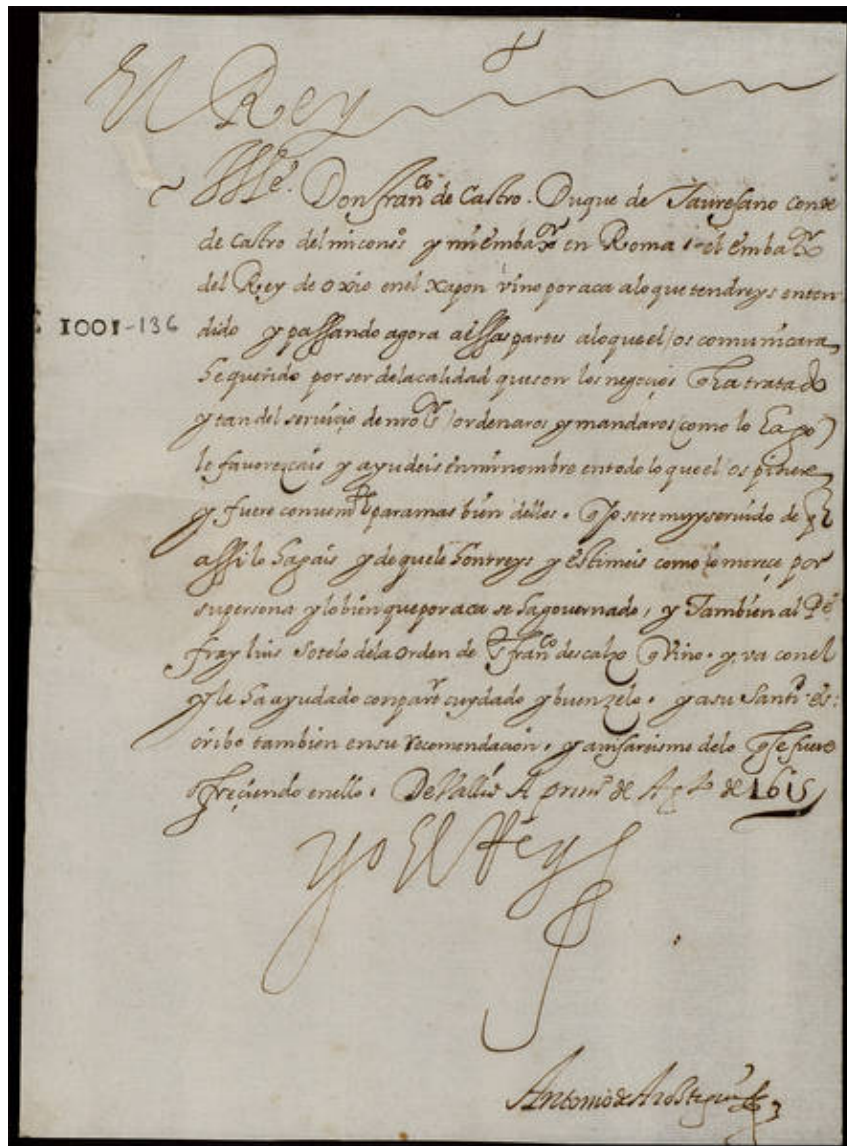 El Rey
Ill.e Don Fran.co de Castro. Duque de Tauresano conde
de Castro del mi cons.o y mi emba.or en Roma. el emba.or
del Rey de oxio en el Xapon vino por aca alo que tendreys enten
1001-136
dido y passando agora a essas partes alo que el os comunicara
he querido por ser de la calidad que son los negocios q ha tratado
y tan del serviçio de nro s.r ordenaros y mandaros (como lo hago)
le favorezcais y ayudeis en mi nombre en todo lo que el os pidiere
y fuere conven.te para mas bien dellos. q yo sere muy servido de q
assi lo hagais y de que le honrreys y estimeis como lo mereçe por
su persona y lo bien que por aca se ha governado, y Tambien al P.e
fray luis sotelo de la orden de s.t fran.co descalzo q vino. y va con el
y le ha ayudado con par.r cuydado y buen zelo. y a su Sant.d es:
cribo tambien en su recomendaçion. y avisareisme de lo q se fuere
ofreçiendo en ello. De Vall.id A prim.o de Ag.to de 1615
Yo El Rey
Antonio de Arostegui